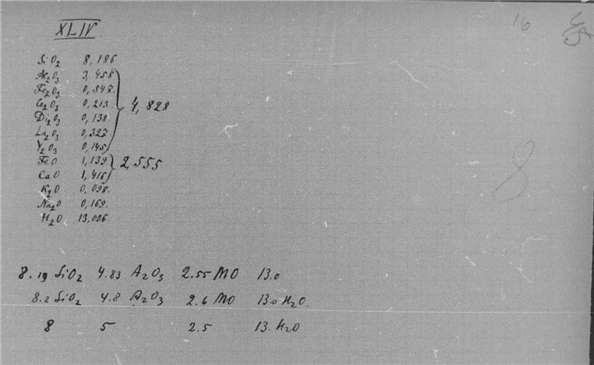 XLIV
16
SiO2 8,186
Al2O3 3,458
Fe2O3 0,547
Ce2O3 0,213
Di2O3 0,138
La2O3 0,327
Y2O3 0,145
4,828
FeO 1,139
CaO 1,416
2,555
K2O 0,098
Na2O 0,169
H2O 13,006
8
8.19 SiO2 4.83 A2O3 2.55 MO 13.0
8.2 SiO2 4.8 A2O3 2.6 MO 13.0 H2O
8 5 2.5 13.H2O